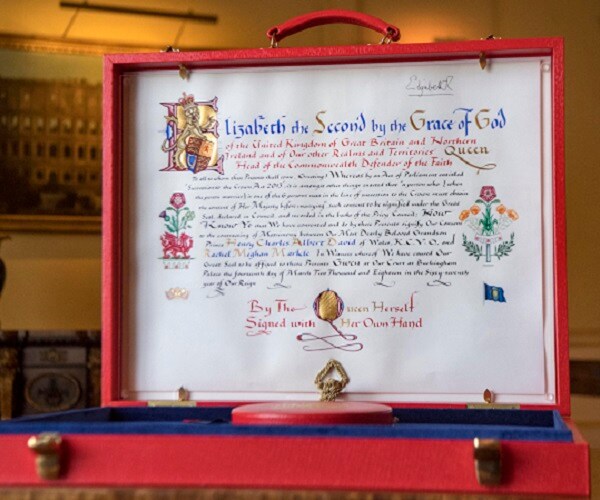 Elizabeth R
Elizabeth the Second by the Grace of God
of the United Kingdom of Great Britain and Northern
Ireland and of Our other Realms and Territories Queen
Head of the Commonwealth Defender of the Faith
To all to whom these Presents shall come Greeting! Whereas by an Act of Parliament entituled
Succession to the Crown Act 2013", it is amongst other things enacted that "a person who (when
the person marries) is one of the 6 persons next in the line of succession to the Crown must obtain
the consent of Her Majesty before marrying" such consent to be signified under the Great
Seal declared in Council, and recorded in the books of the Privy Council; Now
Know Ye that We have consented and do by these Presents signify Our Consent
to the contracting of Matrimony between Our Most Dearly Beloved Grandson
Prince Henry Charles Albert David of Wales, K.C.V.O., and
Rachel Meghan Markle In Witness whereof We have caused Our
Great Seal to be affixed to these Presents Given at Our Court at Buckingham
Palace the fourteenth day of March Two Thousand and Eighteen in the Sixty seventh
year of Our Reign
By The Queen Herself
Signed with Her Own Hand